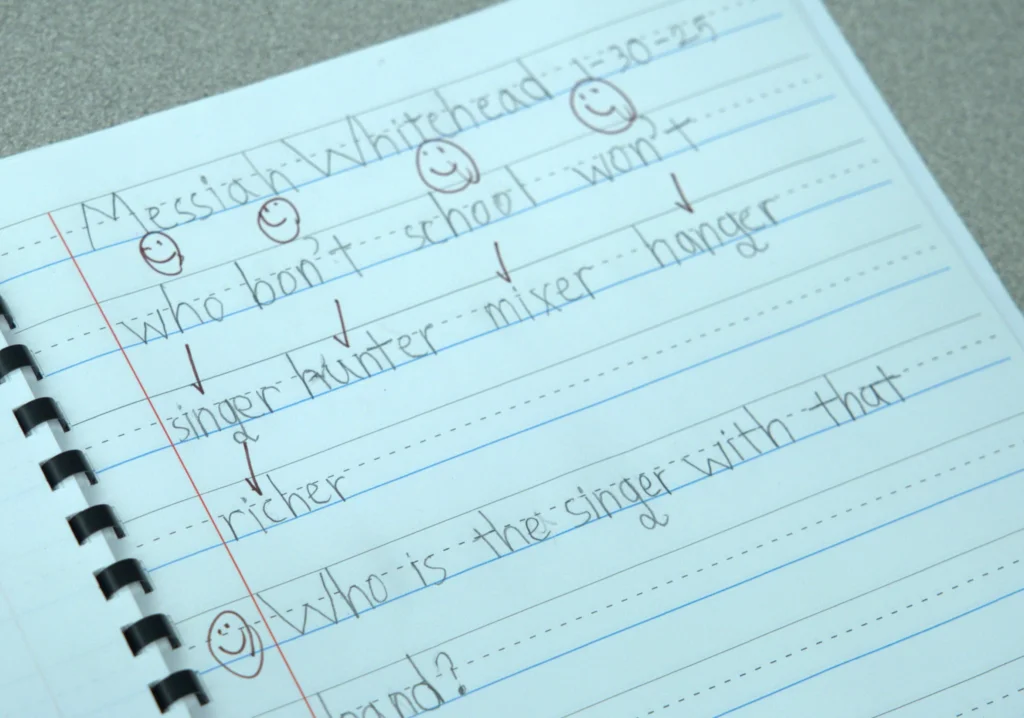 Messiah Whitehead 1-30-25
who bon't school won't
singer hunter mixer hanger
richer
Who is the singer with that
band?